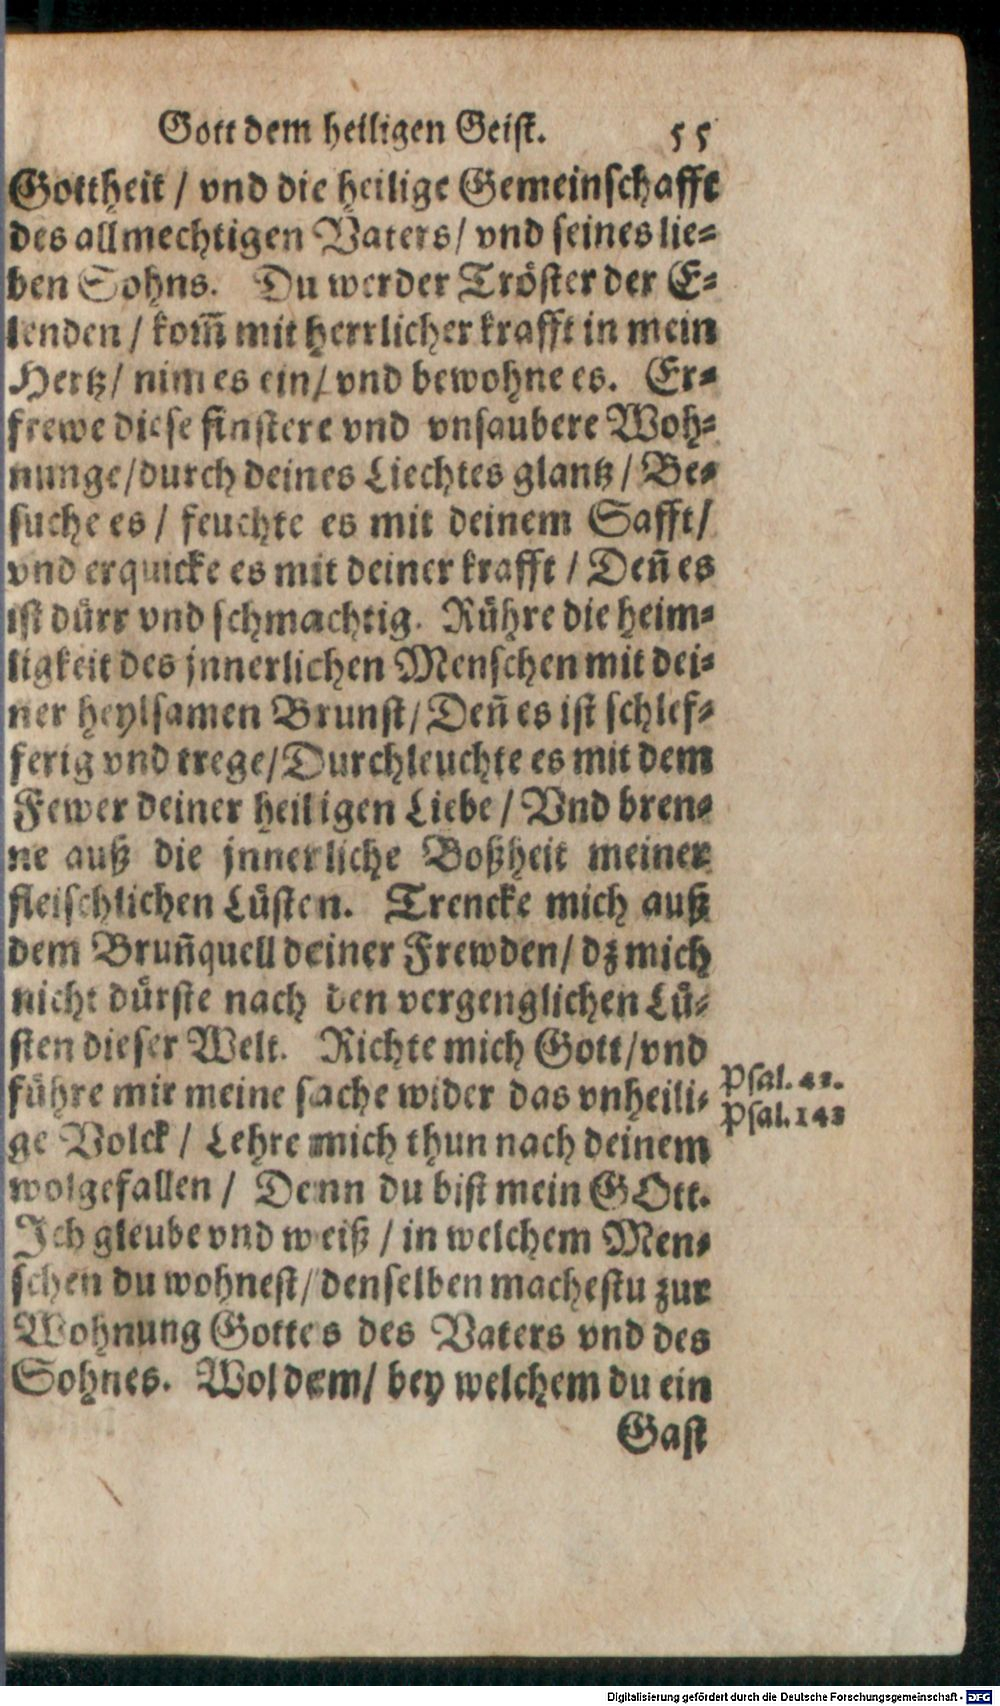 Gott dem heiligen Geist. 55
Gottheit / vnd die heilige Gemeinschafft
des allmechtigen Vaters / vnd seines lie-
ben Sohns. Du werder Tröster der E-
lenden / kom̃ mit herrlicher krafft in mein
Hertz / nim es ein / vnd bewohne es. Er-
frewe diese finstere vnd vnsaubere Woh-
nunge / durch deines Liechtes glantz / Be-
suche es / feuchte es mit deinem Safft /
vnd erquicke es mit deiner krafft / Deñ es
ist dürr vnd schmachtig. Rühre die heim-
ligkeit des jnnerlichen Menschen mit dei-
ner heylsamen Brunst / Deñ es ist schlef-
ferig vnd trege / Durchleuchte es mit dem
Fewer deiner heiligen Liebe / Vnd bren-
ne auß die jnnerliche Boßheit meiner
fleischlichen Lüsten. Trencke mich auß
dem Bruñquell deiner Frewden / dz mich
nicht dürste nach den vergenglichen Lü-
sten dieser Welt. Richte mich Gott / vnd
führe mir meine sache wider das vnheili-
ge Volck / Lehre mich thun nach deinem
wolgefallen / Denn du bist mein GOtt.
Ich gleube vnd weiß / in welchem Men-
schen du wohnest / denselben machestu zur
Wohnung Gottes des Vaters vnd des
Sohnes. Wol dem / bey welchem du ein
Gast
Psal. 43.
Psal. 143
Digitalisierung gefördert durch die Deutsche Forschungsgemeinschaft - DFG